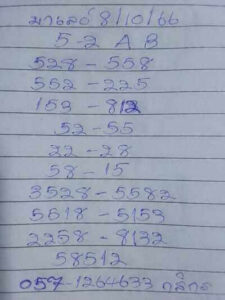 มาเลย์ 8/10/66
5-2 A B
528-558
552-225
153-812
52-55
22-28
58-15
3528-5582
5618-5153
2258-8132
58512
057-1264633 กสิกร